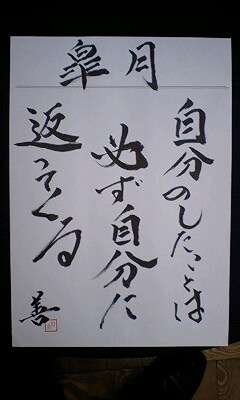 皐月
自分のしたことは
必ず自分に
返ってくる
善